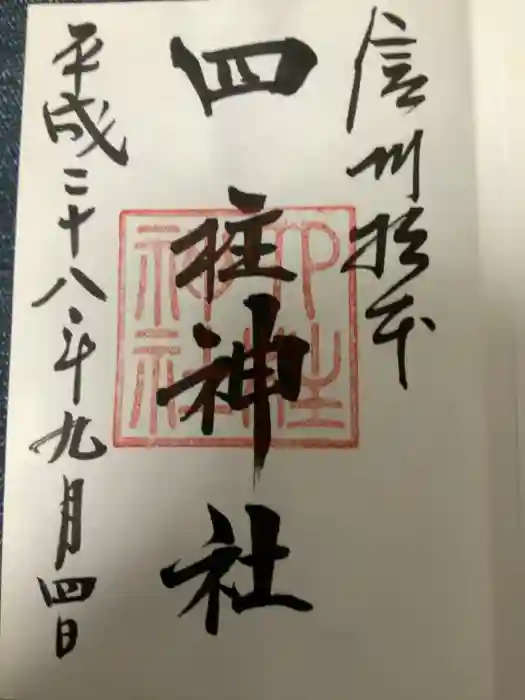 信州松本
四柱神社
四柱神社
平成二十八年九月四日